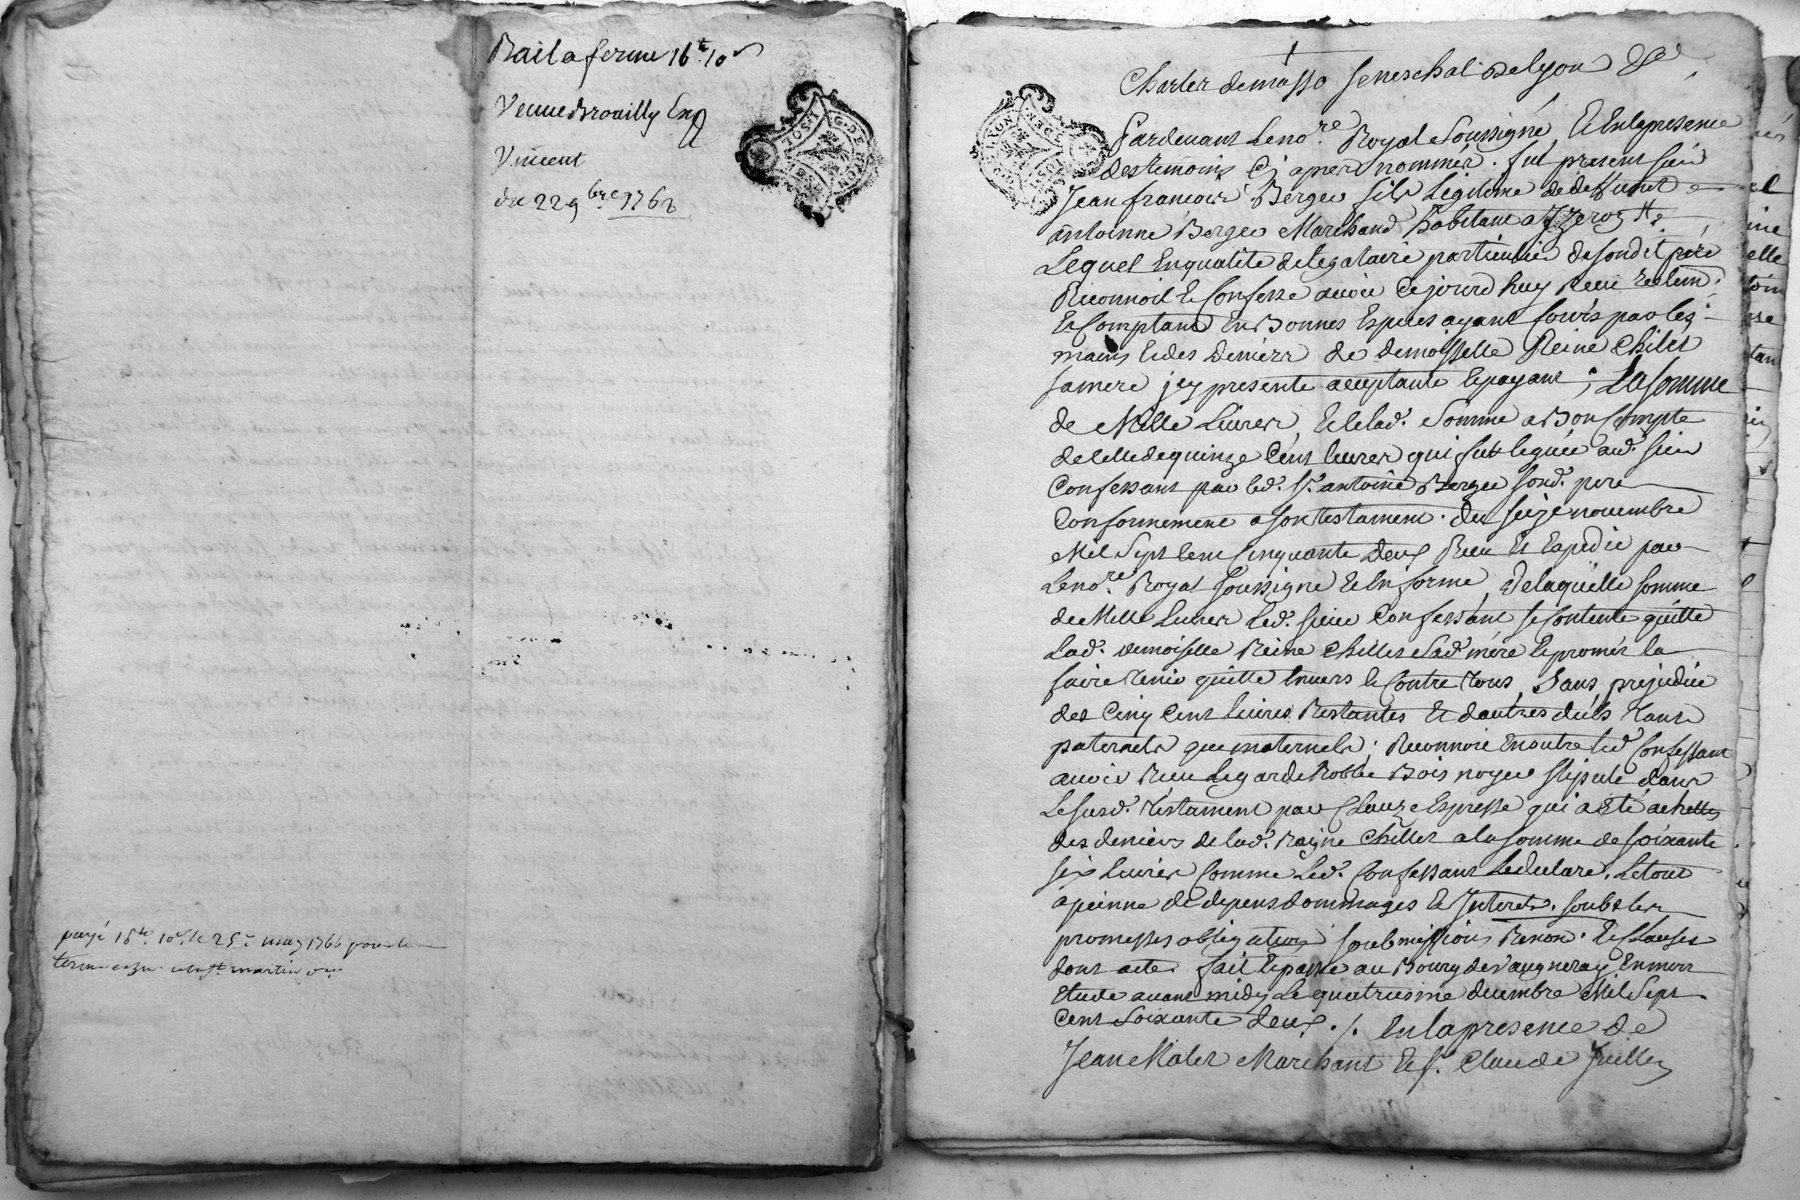 Bail a ferme 16ᵗ 10ˢ
Veuve Brouilly Exp
Vincent
du 22 9bre 1762
payé 16ᵗ 10ˢ le 25ᵉ may 1766 pour le
terme st martin
G. DE LYON
Charles de masso seneschal de lyon &a
Pardevant le nore Royal soussigné, et en la presence
des temoins cy apres nommés. fut present sieur
Jean francois Berger fils legitime de deffunct
antoinne Berger Marchand habitant a Yzeron
Lequel en qualité de legataire particulier de sondit père
Reconnoit et Confesse avoir ce jourd'huy Receu reelemt.
et Comptant en Bonnes Especes ayant cours par les
mains et des deniers de demoiselle Reine Chilet
sa mere jcy presente acceptante et payant; La somme
de Mille Livres, et c'est lad. somme a Bon Compte
de celle de quinze Cent livres qui fut leguée aud. sieur
Confessant par led. sr. antoine Berger sond. pere
Conformement a son testament. du seize novembre
Mil Sept Cent Cinquante Deux Receu et Expedié par
Le nore. Royal soussigné et en forme, de laquelle somme
de Mille Livres led. sieur Confessant se Contente quitte
Lad. demoiselle Reine Chillet sad. mère et promet la
faire tenir quitte Envers et Contre tous, Sans prejudice
des Cinq Cent livres Restantes et d'autres duës tant
paternels que maternels; Reconnoit en outre led. Confessant
avoir Receu Le garderobbe Bois noyer stipulé dans
Le susd. testament par Clauze Expresse qui a été achetté
des deniers de lad. Raine Chillet a la somme de soixante
six Livres Comme Led. Confessant Le declare, Le tout
a peinne de depens dommages et Interets. soub les
promesses obligations soubmissions Renon. et Clauses
dont acte fait et passé au Bourg de vaugneray En mon
Etude avant midy Le quatriesme decembre Mil Sept
Cent Soixante deux ./. En la presence de
Jean Maler Marchant et sr. Claude Juillez